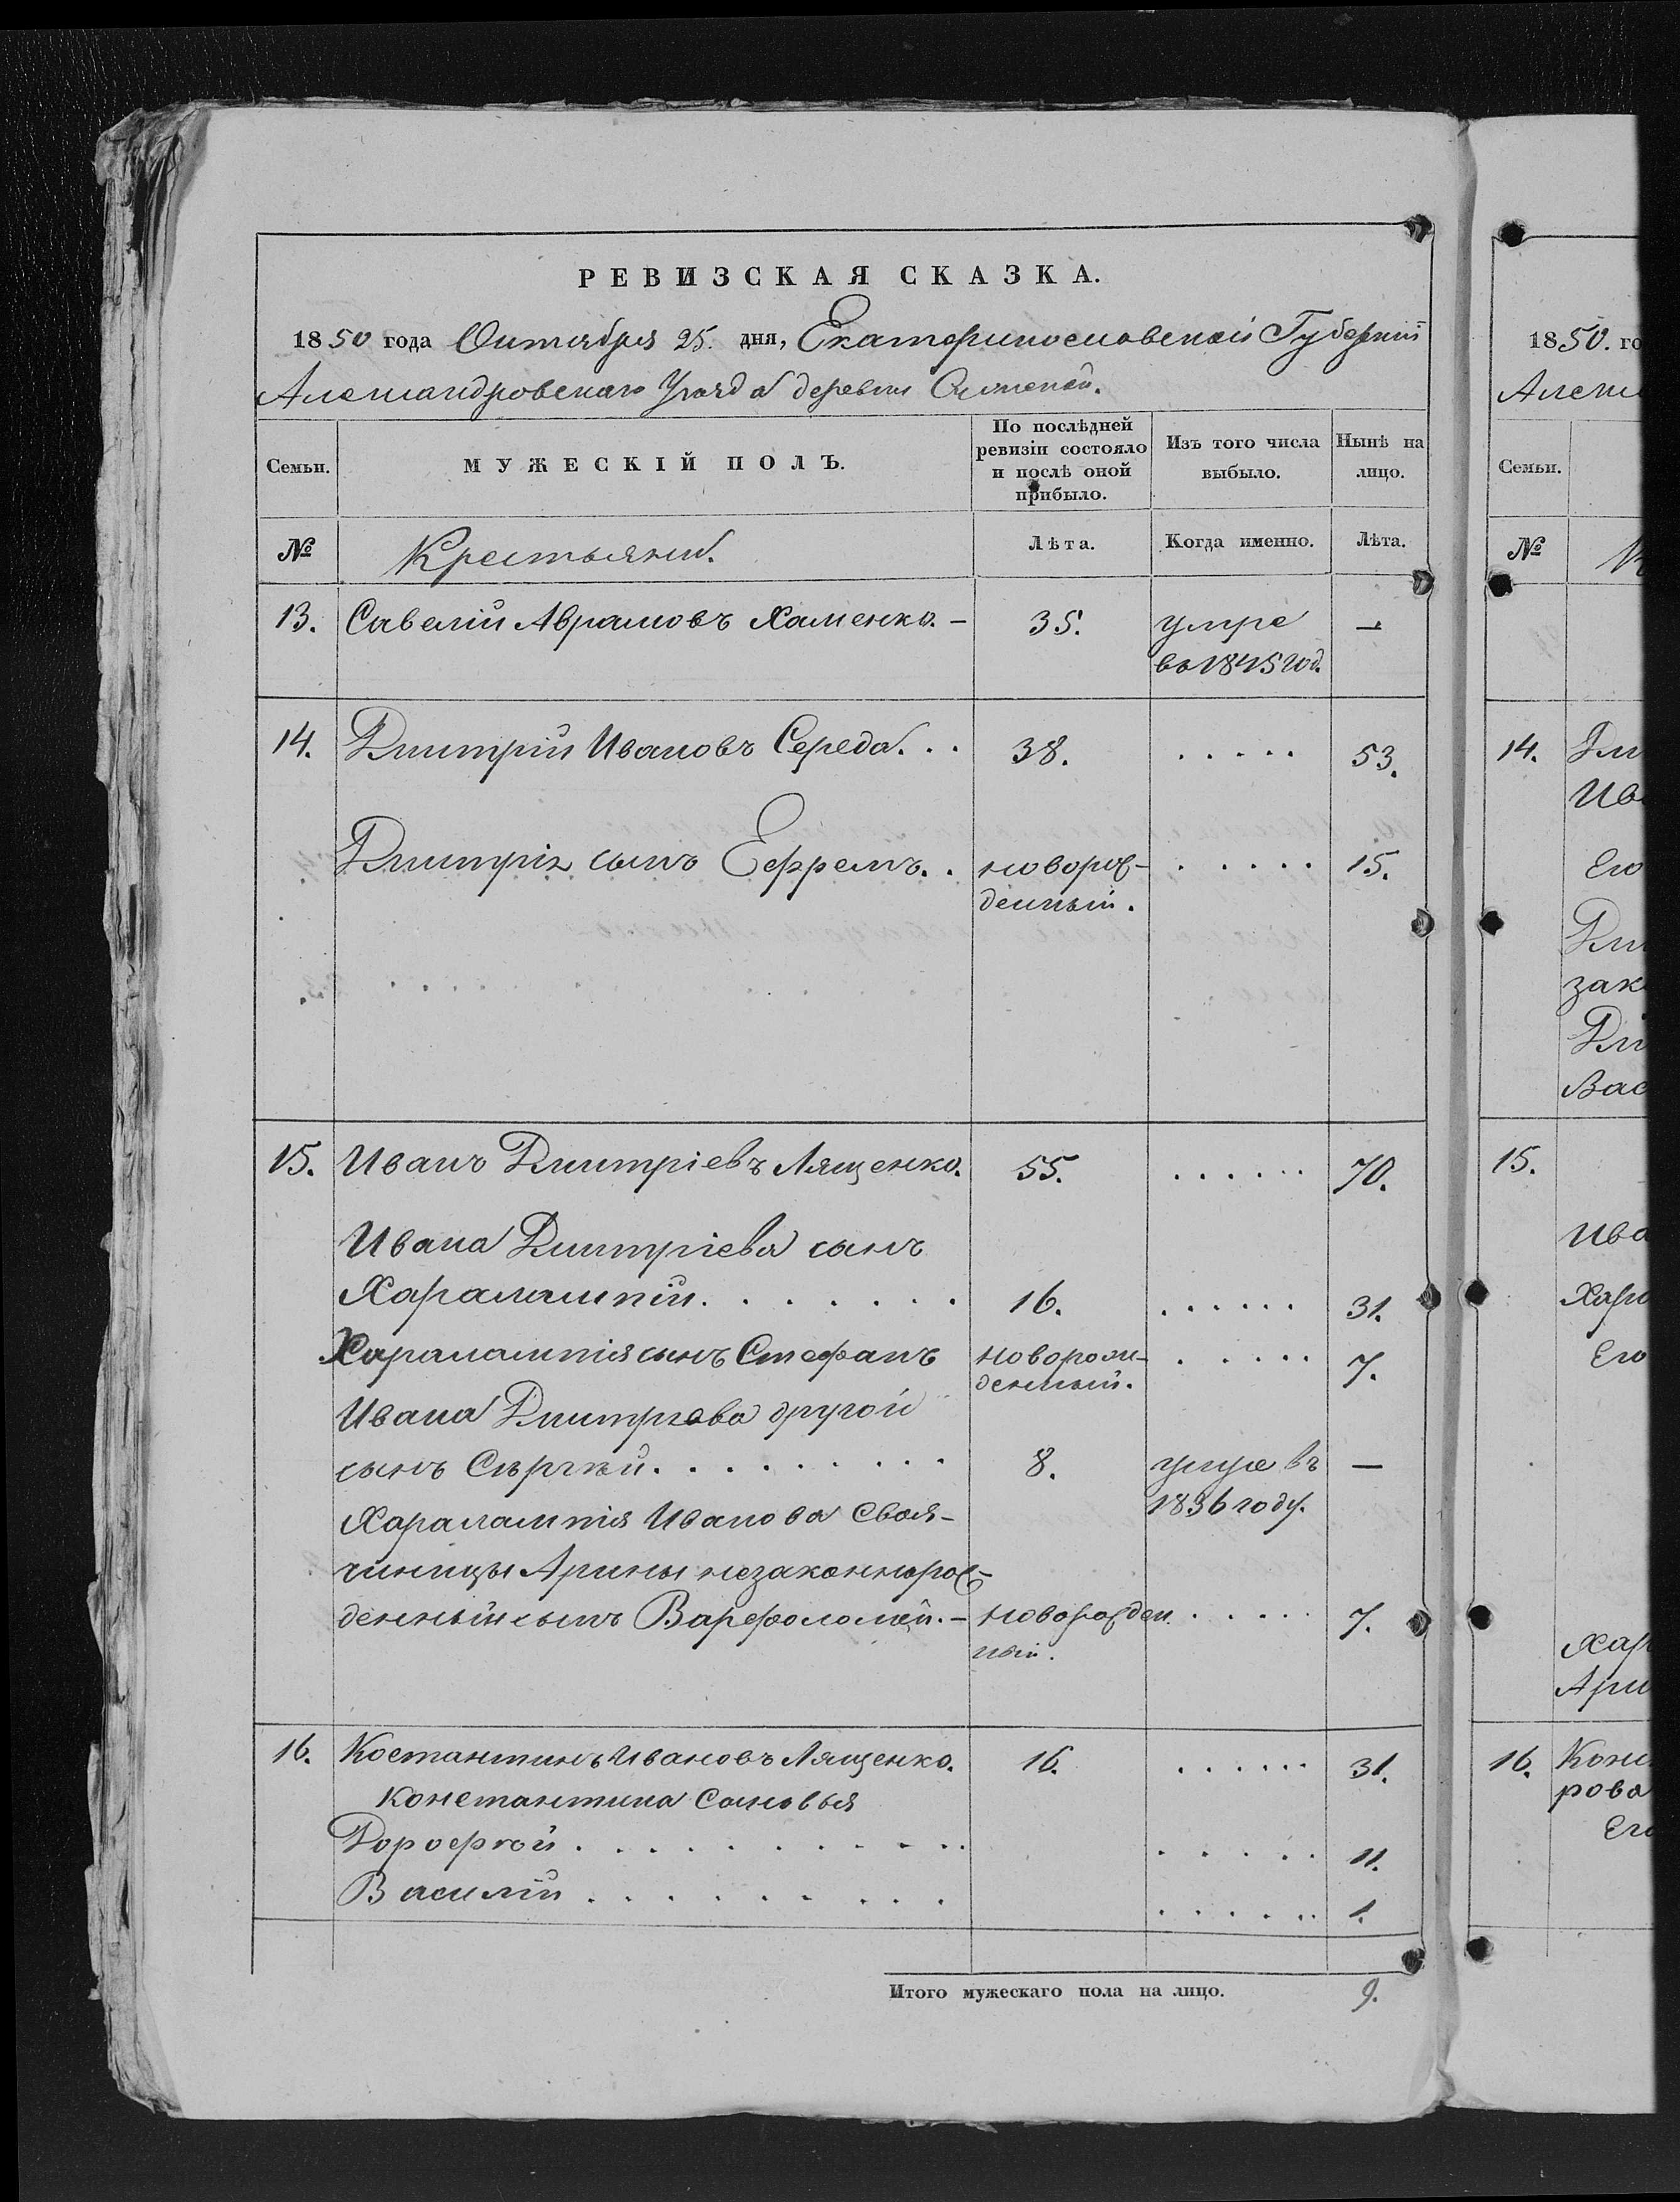 РЕВИЗСКАЯ СКАЗКА.
1850 года Октября 25. дня, Екатеринославской Губернии
Александровскаго Уѣзда деревни
Семьи.
МУЖЕСКІЙ ПОЛЪ.
По послѣдней ревизіи состояло и послѣ оной прибыло.
Изъ того числа выбыло.
Нынѣ на лицо.
№
Крестьяни.
Лѣта.
Когда именно.
Лѣта.
13. Савелій Аврамовъ Хаменко. – 35. умре –
въ 1845 год.
14. Дмитрій Ивановъ Середа. . . 38. . . . . . 53.
Дмитрія сынъ Ефремъ. . новорож- . . . . . 15.
денный.
15. Иванъ Дмитріевъ Лященко. 55. . . . . . . 70.
Ивана Дмитріева сынъ
Харалампій. . . . . . . 16. . . . . . . 31.
Харалампія сынъ Стефанъ новорож- . . . . . 7.
денный.
Ивана Дмитріева другой
сынъ Сѣргѣй. . . . . . . . . 8. умре въ –
1836 году.
Харалампія Иванова своя-
чиницы Арины незаконнорож-
денный сынъ Варфоломѣй. – новорожден . . . . . 7.
ный.
16. Костантинъ Ивановъ Лященко. 16. . . . . . . 31.
Константина Сановья
Дорофѣй . . . . . . . . . . . . . . . . 11.
Василій . . . . . . . . . . . . . . . 1.
Итого мужескаго пола на лицо. 9.
1850. го
Алекс
Семьи.
№
К
14. Дм
Ива
Его
Дми
зак
Дм
Вас
15.
Ива
Хара
Его
Хар
Ари
16. Конс
рова
Его